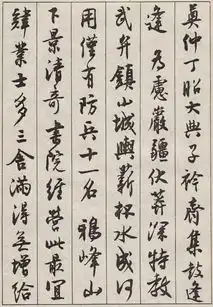 真仲丁昭大典子衿齊集駿
逢 為慮巖疆伏莽深特教
武弁鎮山城輿薪杯水成何
用僅有防兵十一名 鵝峰山
下景清奇書院經營此最宜
緯業士多三舍滿得無增給